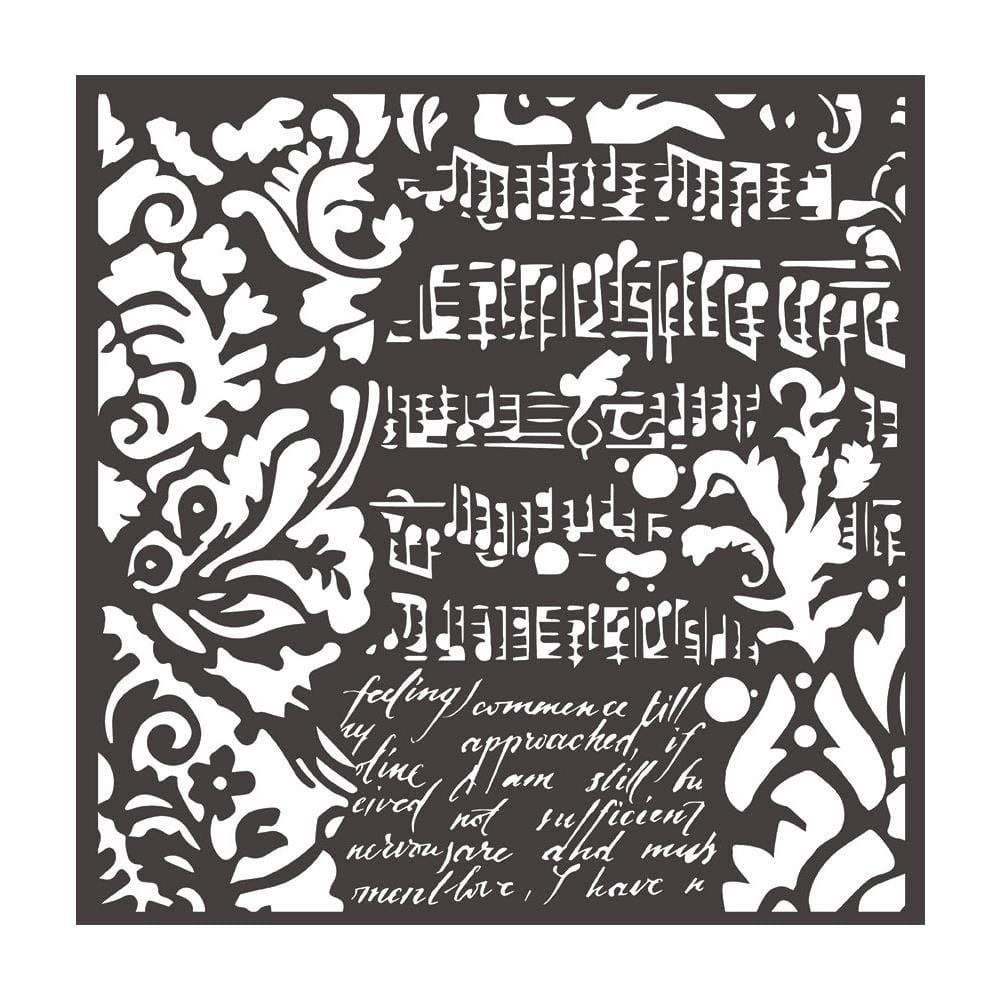 feeling commence till
ny approached, if
line I am still bu
eived not sufficient
nervous are and mus
ment love, I have n